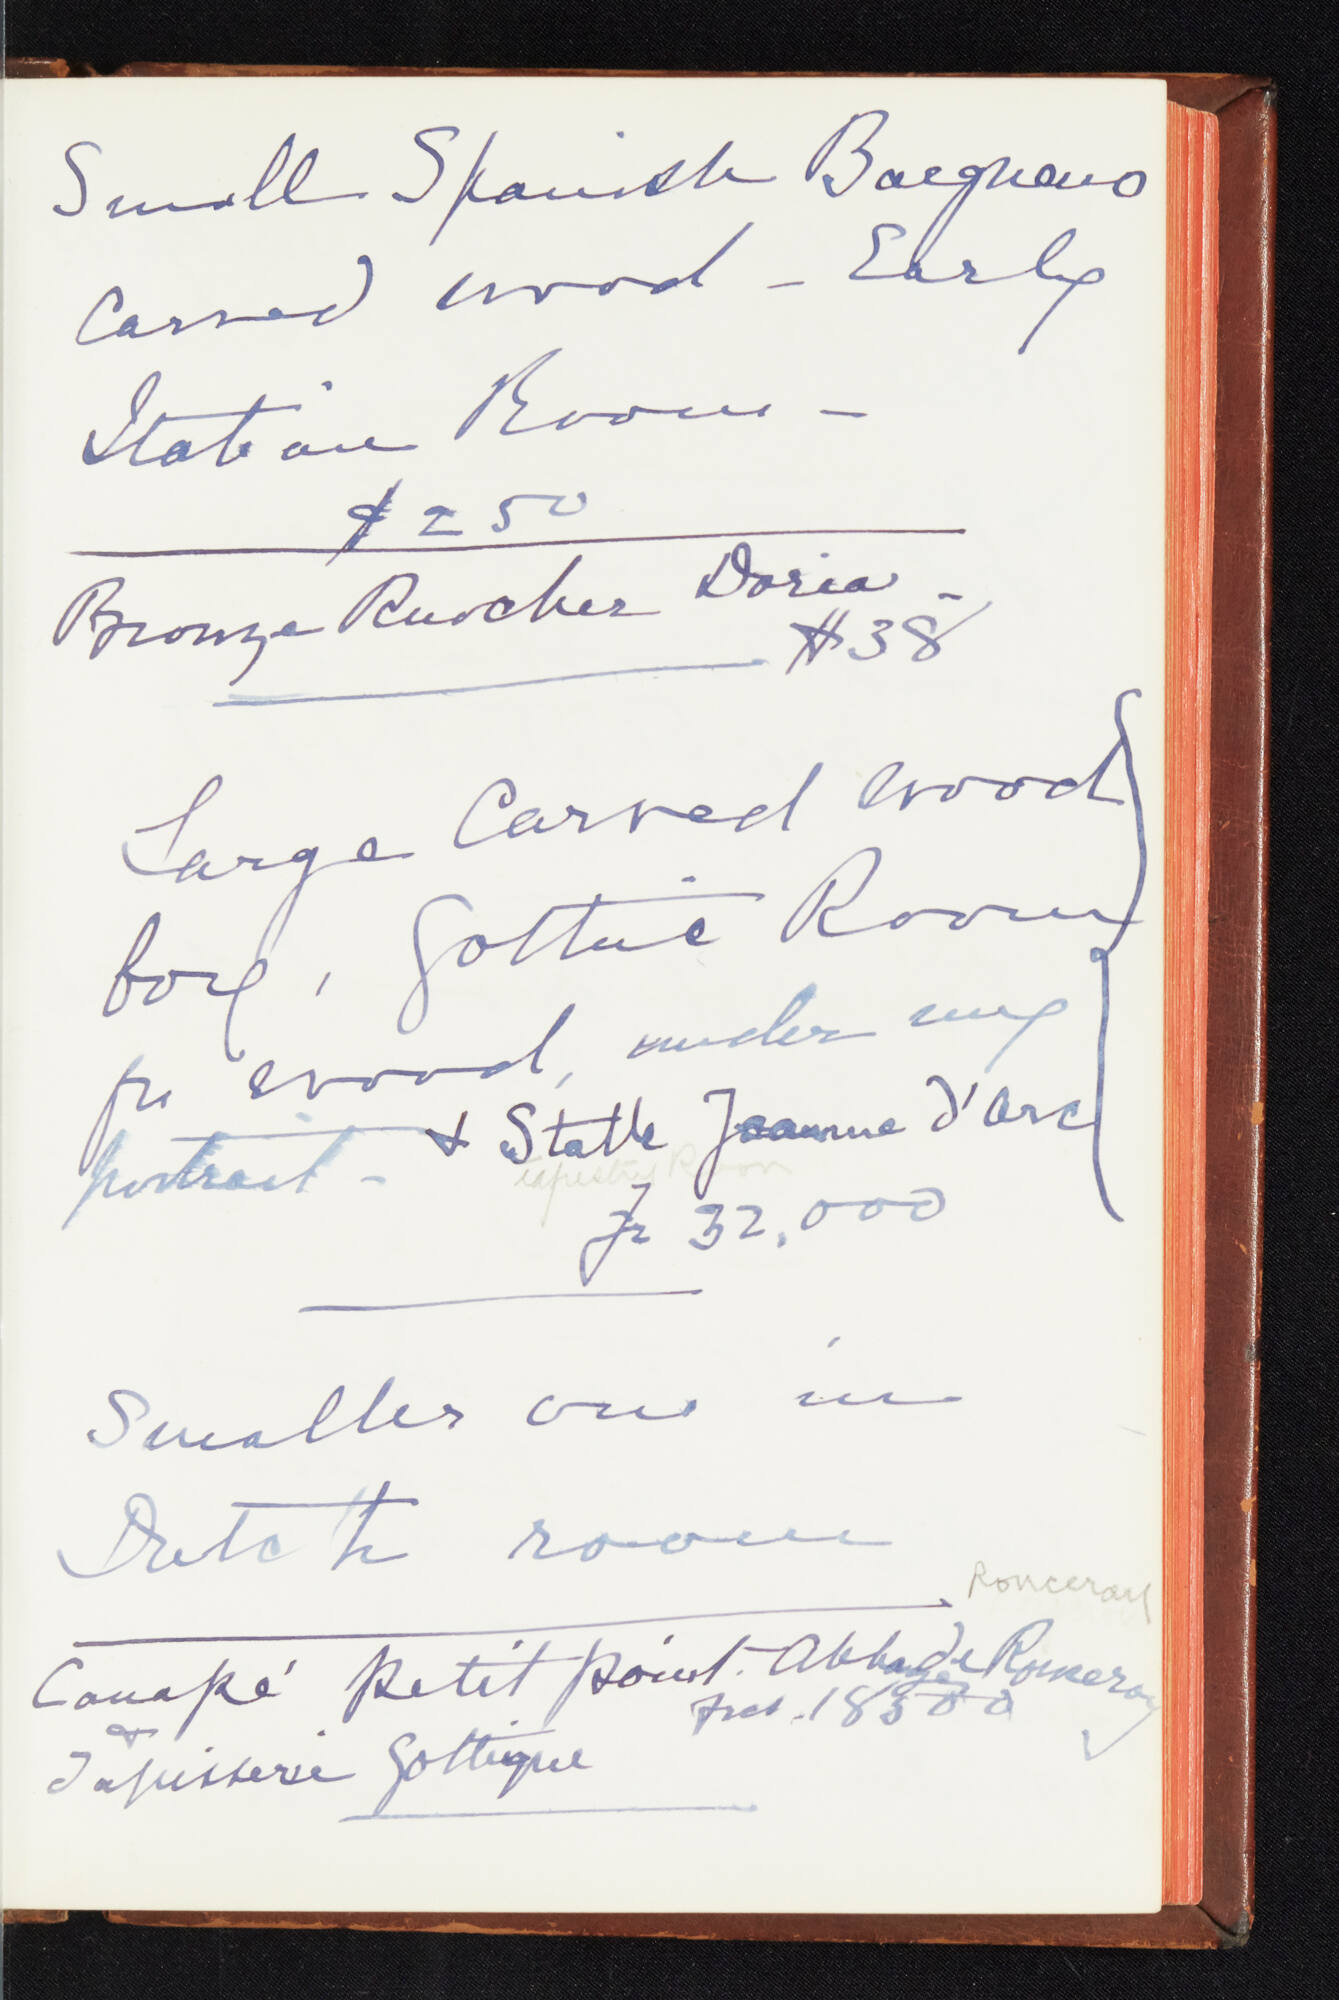 Small Spanish Bargueno
Carved wood - Early
Italian Room -
$250
Bronze Knocker Doria -
$38
Large Carved wood
box, Gothic Room
fir wood, under my
portrait - & Stalle Jeanne d'Arc
tapestry Room
Fr 32,000
Smaller one in
Dutch room
Ronceray
Canapé petit point. Abbaye de Ronceray
& frcs. 18500
Tapisserie Gothique